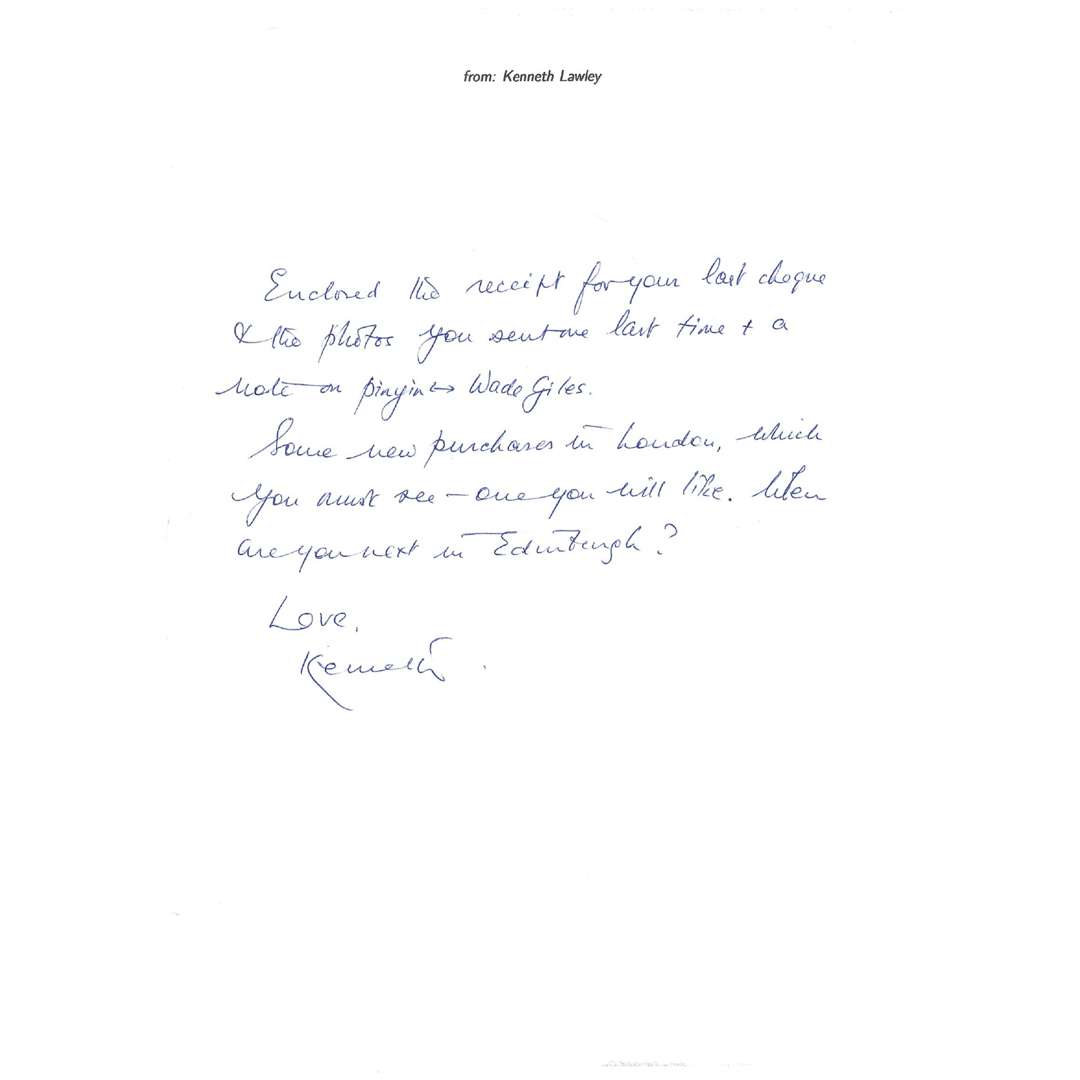 from: Kenneth Lawley
Enclosed the receipt for your last cheque
& the photos you sent me last time + a
note on pinyin ↔ Wade Giles.
Some new purchases in London, which
you must see – one you will like. When
are you next in Edinburgh?
Love,
Kenneth.